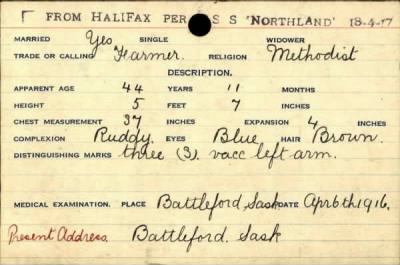 FROM HALIFAX PER S S 'NORTHLAND' 18-4-17
MARRIED Yes SINGLE WIDOWER
TRADE OR CALLING Farmer. RELIGION Methodist
DESCRIPTION.
APPARENT AGE 44 YEARS 11 MONTHS
HEIGHT 5 FEET 7 INCHES
CHEST MEASUREMENT 37 INCHES EXPANSION 4 INCHES
COMPLEXION Ruddy. EYES Blue. HAIR Brown.
DISTINGUISHING MARKS three (3). vacc left arm.
MEDICAL EXAMINATION. PLACE Battleford, Sask DATE Apr 6th 1916.
Present Address. Battleford. Sask